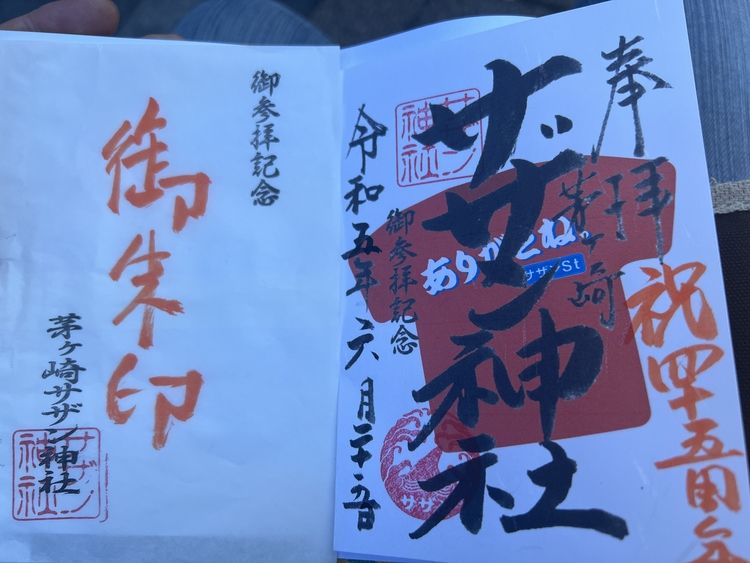 奉拝
祝四十五周年
茅ヶ崎
サザン神社
サザン神社
ありがとね。
サザンSt
御参拝記念
令和五年六月二十五日
サザ
御参拝記念
御朱印
茅ヶ崎サザン神社
サザン神社